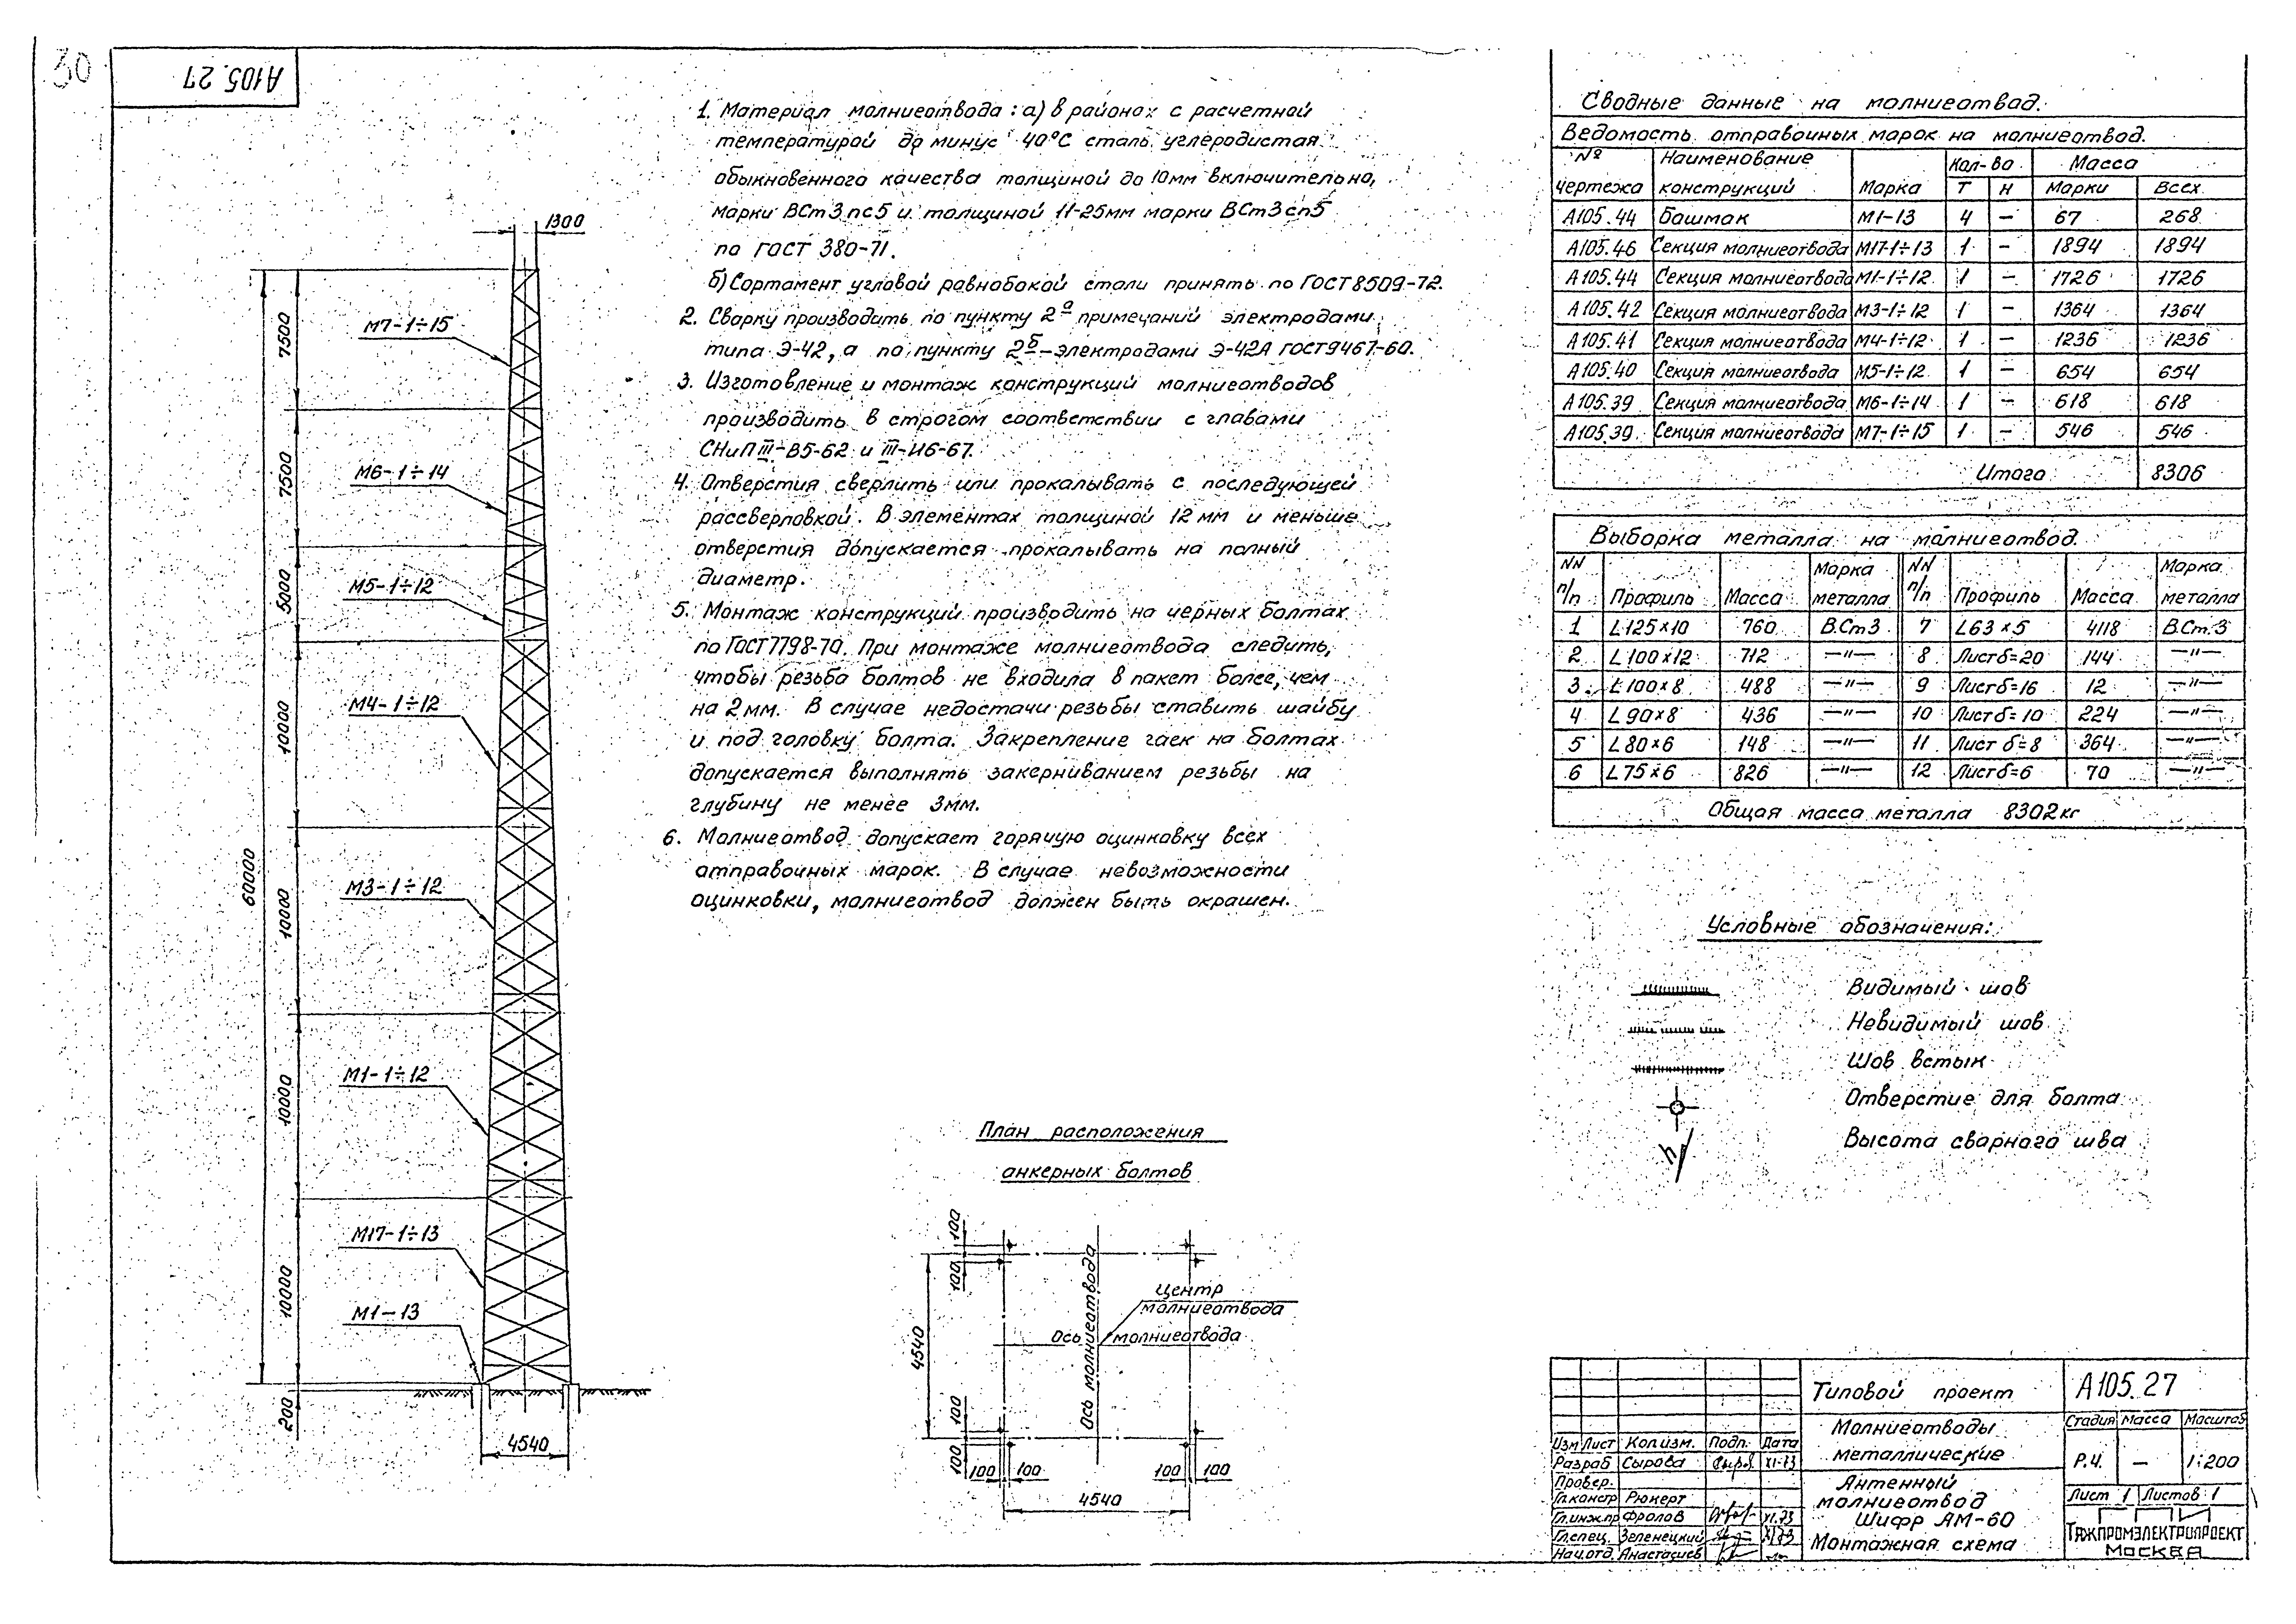 30
А105.27
1300
7500
М7-1÷15
7500
М6-1÷14
5000
М5-1÷12
10000
М4-1÷12
60000
10000
М3-1÷12
10000
М1-1÷12
10000
М17-1÷13
М1-13
200
4540
1. Материал молниеотвода: а) в районах с расчетной
температурой до минус 40°С сталь углеродистая
обыкновенного качества толщиной до 10мм включительно,
марки ВСт3пс5 и толщиной 11-25мм марки ВСт3сп5
по ГОСТ 380-71.
б) Сортамент угловой равнобокой стали принять по ГОСТ 8509-72.
2. Сварку производить по пункту 2а примечаний электродами
типа Э-42, а по пункту 2б-электродами Э-42А ГОСТ9467-60.
3. Изготовление и монтаж конструкций молниеотводов
производить в строгом соответствии с главами
СНиП III-В5-62 и III-И6-67.
4. Отверстия сверлить или прокалывать с последующей
рассверловкой. В элементах толщиной 12 мм и меньше
отверстия допускается прокалывать на полный
диаметр.
5. Монтаж конструкций производить на черных болтах
по ГОСТ7798-70. При монтаже молниеотвода следить,
чтобы резьба болтов не входила в пакет более, чем
на 2мм. В случае недостачи резьбы ставить шайбу
и под головку болта. Закрепление гаек на болтах
допускается выполнять закерниванием резьбы на
глубину не менее 3мм.
6. Молниеотвод допускает горячую оцинковку всех
отправочных марок. В случае невозможности
оцинковки, молниеотвод должен быть окрашен.
План расположения
анкерных болтов
100
100
4540
100
100
100 100 100 100
4540
Ось молниеотвода
Центр
молниеотвода
Ось молниеотвода
Сводные данные на молниеотвод.
Ведомость отправочных марок на молниеотвод.
№ чертежа Наименование конструкций Марка Кол-во Т Н Масса Марки Всех
А105.44 Башмак М1-13 4 — 67 268
А105.46 Секция молниеотвода М17-1÷13 1 — 1894 1894
А105.44 Секция молниеотвода М1-1÷12 1 — 1726 1726
А105.42 Секция молниеотвода М3-1÷12 1 — 1364 1364
А105.41 Секция молниеотвода М4-1÷12 1 — 1236 1236
А105.40 Секция молниеотвода М5-1÷12 1 — 654 654
А105.39 Секция молниеотвода М6-1÷14 1 — 618 618
А105.39 Секция молниеотвода М7-1÷15 1 — 546 546
Итого 8306
Выборка металла на молниеотвод.
NN п/п Профиль Масса Марка металла NN п/п Профиль Масса Марка металла
1 L125×10 760 В.Ст3 7 L63×5 4118 В.Ст.3
2 L100×12 712 —"— 8 Лист δ=20 144 —"—
3 L100×8 488 —"— 9 Лист δ=16 12 —"—
4 L90×8 436 —"— 10 Лист δ=10 224 —"—
5 L80×6 148 —"— 11 Лист δ=8 364 —"—
6 L75×6 826 —"— 12 Лист δ=6 70 —"—
Общая масса металла 8302кг
Условные обозначения:
Видимый шов
Невидимый шов
Шов встык
Отверстие для болта
h Высота сварного шва
Типовой проект А105.27
Молниеотводы
металлические
Стадия Масса Масштаб
Р.Ч. — 1:200
Изм Лист Кол изм. Подп. Дата
Разраб Сырова XI-73
Провер.
Гл.констр Рюкерт
Гл.инж.пр Фролов XI.73
Гл.спец. Зеленецкий XI.73
Нач.отд. Анастасиев
Антенный
молниеотвод
Шифр АМ-60
Монтажная схема
Лист 1 Листов 1
ТЯЖПРОМЭЛЕКТРОПРОЕКТ
МОСКВА